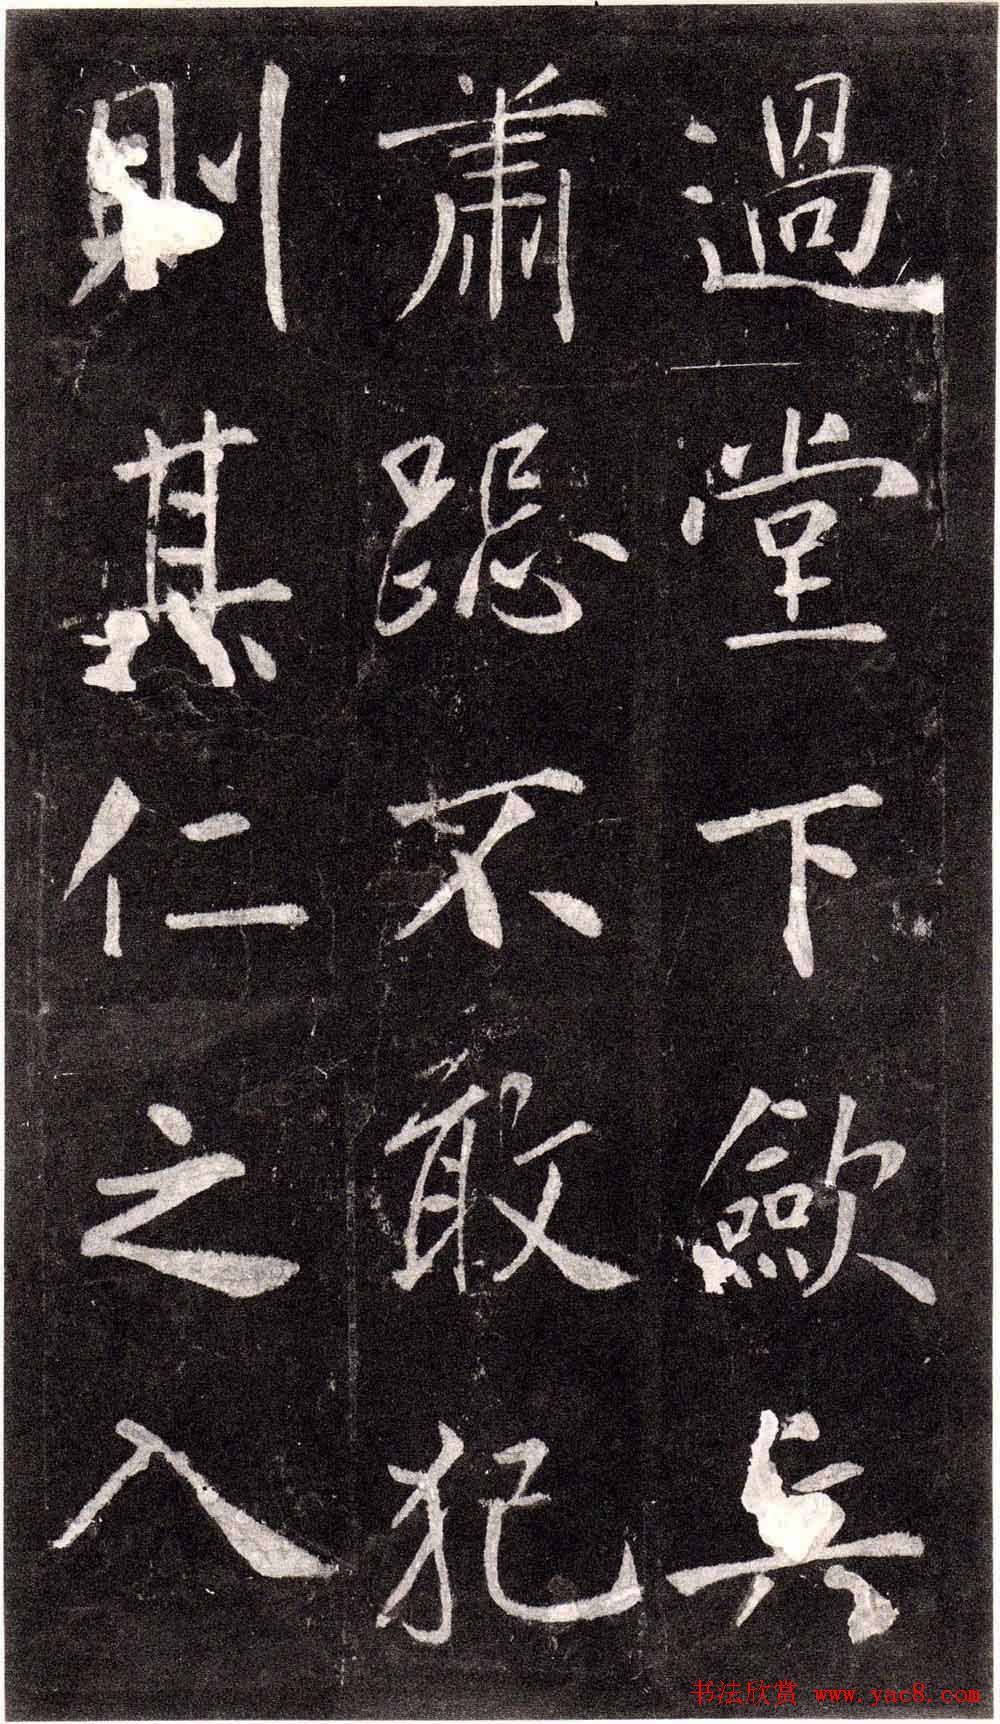 過堂下歛兵
肅跽不敢犯
則其仁之入
书法欣赏 www.yac8.com